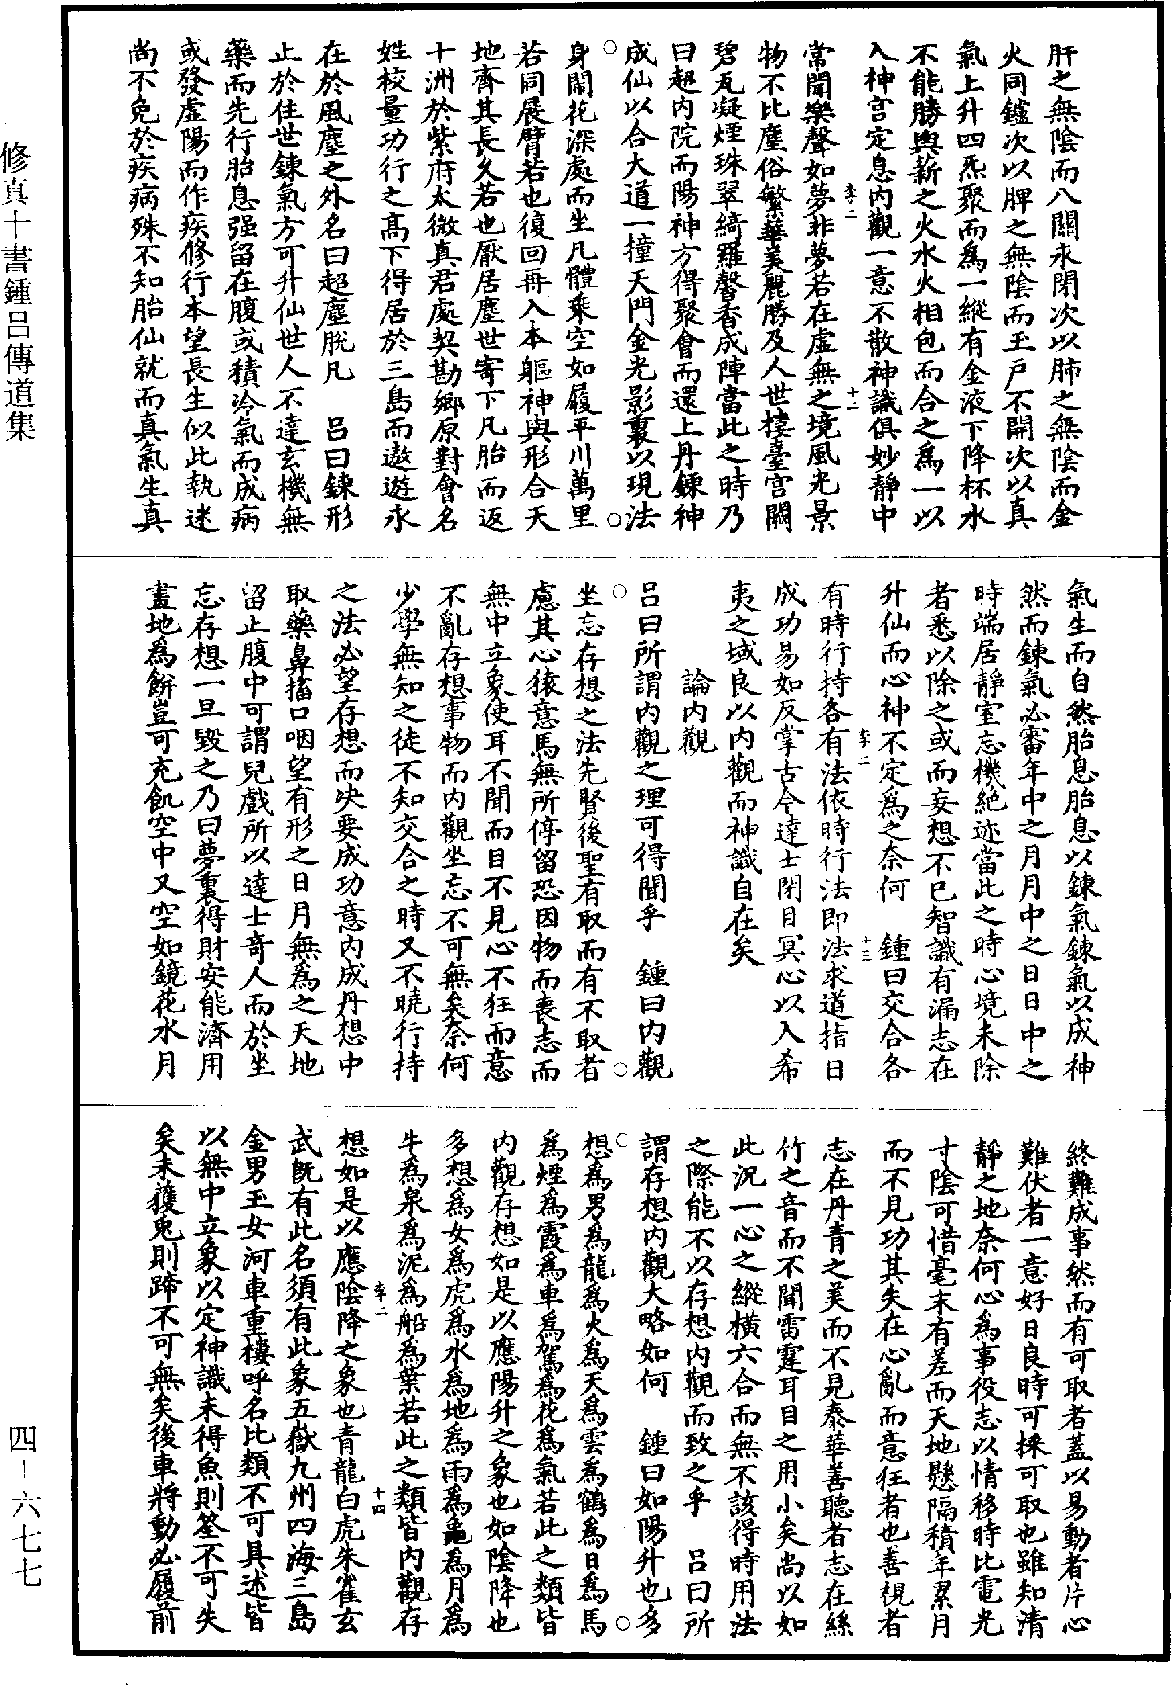 修真十書鍾呂傳道集
四一六七七
肝之無陰而八關永閉次以肺之無陰而金
火同鑪次以脾之無陰而玉戶不開次以真
氣上升四炁聚而為一縱有金液下降杯水
不能勝輿薪之火水火相包而合之為一以
入神宮定息內觀一意不散神識俱妙靜中
李二
十二
常聞樂聲如夢非夢若在虛無之境風光景
物不比塵俗繁華美麗勝及人世樓臺宮闕
碧瓦凝煙珠翠綺羅馨香成陣當此之時乃
曰超內院而陽神方得聚會而還上丹鍊神
成仙以合大道一撞天門金光影裏以現法
身閙花深處而坐凡體乘空如履平川萬里
若同展臂若也復回再入本軀神與形合天
地齊其長久若也厭居塵世寄下凡胎而返
十洲於紫府太微真君處契勘鄉原對會名
姓校量功行之髙下得居於三島而遨遊永
在於風塵之外名曰超塵脫凡　呂曰鍊形
止於住世鍊氣方可升仙世人不達玄機無
藥而先行胎息强留在腹或積冷氣而成病
或發虛陽而作疾修行本望長生似此執迷
尚不免於疾病殊不知胎仙就而真氣生真
氣生而自然胎息胎息以鍊氣鍊氣以成神
然而鍊氣必審年中之月月中之日日中之
時端居靜室忘機絶迹當此之時心境未除
者悉以除之或而妄想不已智識有漏志在
升仙而心神不定為之奈何　鍾曰交合各
李二
十三
有時行持各有法依時行法即法求道指日
成功易如反掌古今達士閉目冥心以入希
夷之域良以內觀而神識自在矣
論內觀
呂曰所謂內觀之理可得聞乎　鍾曰內觀
坐忘存想之法先賢後聖有取而有不取者
慮其心猿意馬無所停留恐因物而喪志而
無中立象使耳不聞而目不見心不狂而意
不亂存想事物而內觀坐忘不可無矣奈何
少學無知之徒不知交合之時又不曉行持
之法必望存想而決要成功意內成丹想中
取藥鼻搐口咽望有形之日月無為之天地
留止腹中可謂兒戲所以達士奇人而於坐
忘存想一旦毀之乃曰夢裏得財安能濟用
畫地為餅豈可充飢空中又空如鏡花水月
終難成事然而有可取者蓋以易動者片心
難伏者一意好日良時可採可取也雖知清
靜之地奈何心為事役志以情移時比電光
寸陰可惜毫末有差而天地懸隔積年累月
而不見功其失在心亂而意狂者也善視者
志在丹青之美而不見泰華善聽者志在絲
竹之音而不聞雷霆耳目之用小矣尚以如
此況一心之縱橫六合而無不該得時用法
之際能不以存想內觀而致之乎　呂曰所
謂存想內觀大略如何　鍾曰如陽升也多
想為男為龍為火為天為雲為鶴為日為馬
為煙為霞為車為駕為花為氣若此之類皆
內觀存想如是以應陽升之象也如陰降也
多想為女為虎為水為地為雨為龜為月為
牛為泉為泥為船為葉若此之類皆內觀存
李二
十四
想如是以應陰降之象也青龍白虎朱雀玄
武既有此名須有此象五嶽九州四海三島
金男玉女河車重樓呼名比類不可具述皆
以無中立象以定神識未得魚則筌不可失
矣未獲兎則蹄不可無矣後車將動必履前